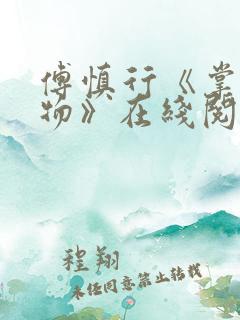 傅慎行《掌
物》在綫閱
程翔
未经同意禁止转载